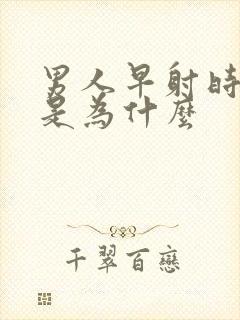 男人早射時
是為什麼
千翠百戀